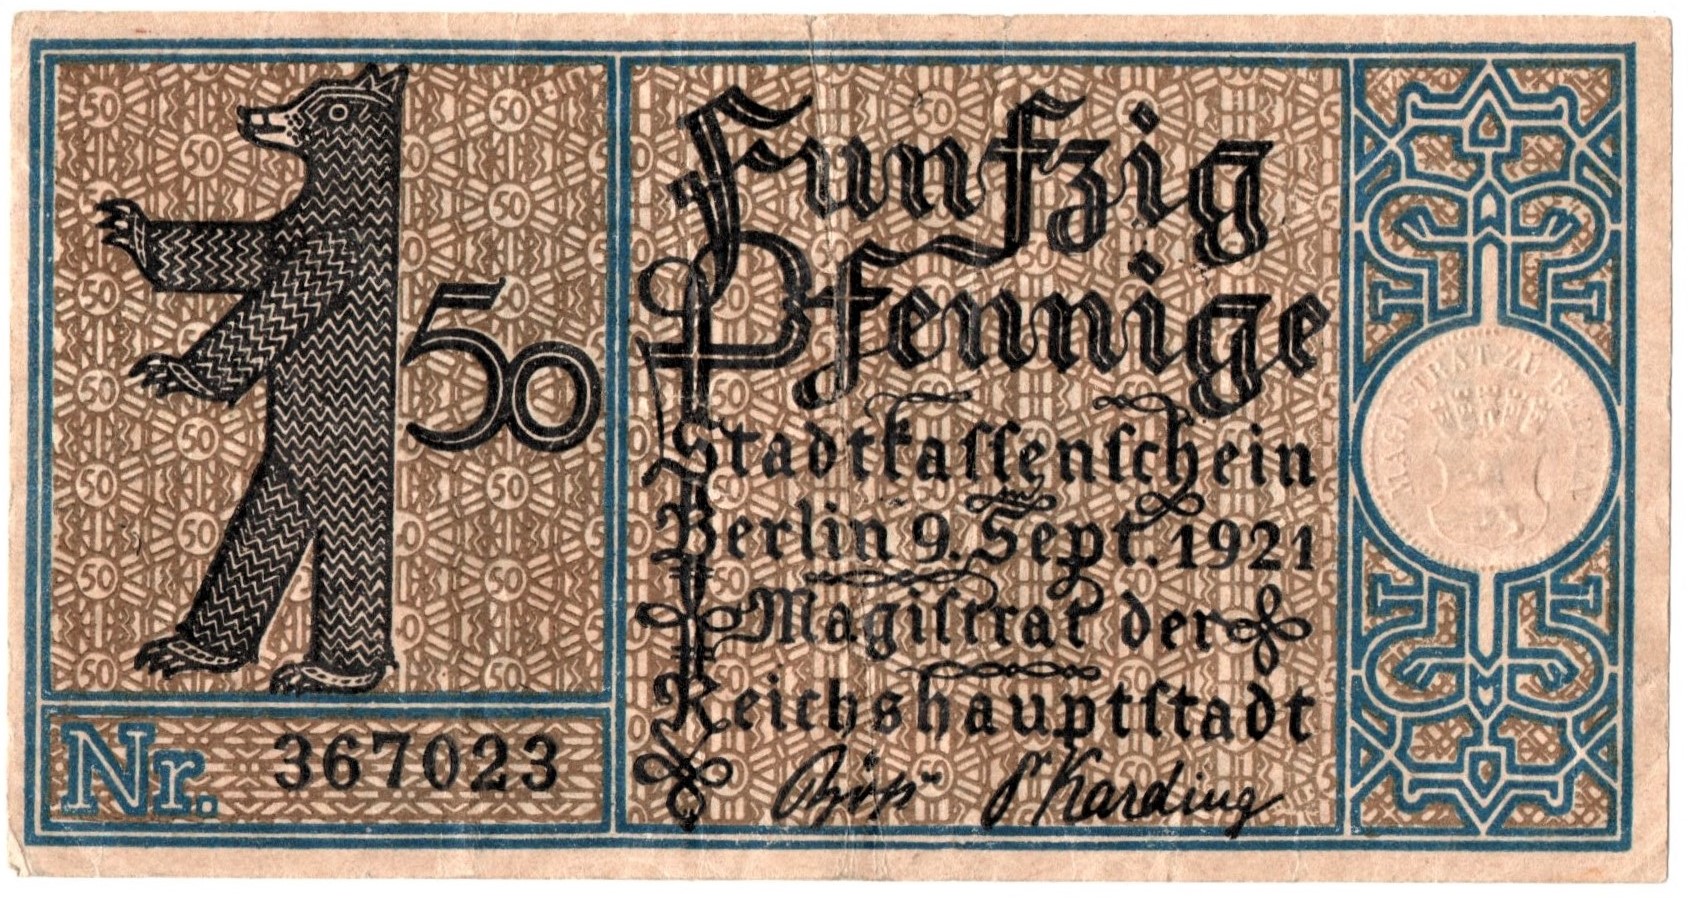 50
Fünfzig
Pfennige
Stadtkaſſenſchein
Berlin 9. Sept. 1921
Magiſtrat der
Reichshauptſtadt
Nr. 367023
MAGISTRAT ZU BERLIN
Böß Dr Karding